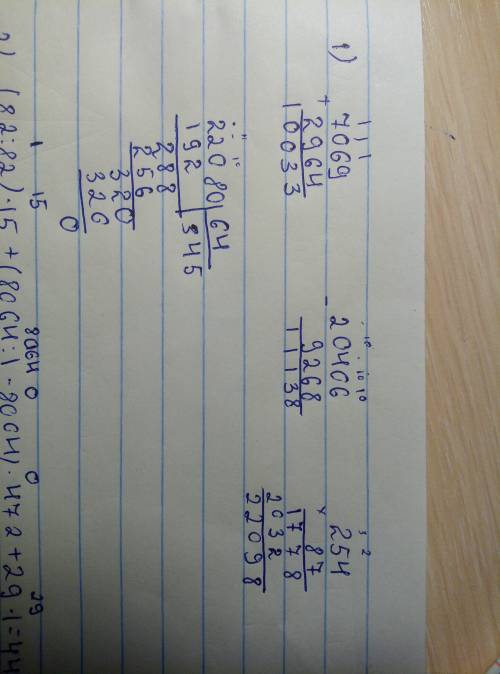 1)
1 1 1
+ 7069
2964
10033
· 10 · 10 10
- 20406
9268
11138
3 2
254
× 87
1778
2032
22098
· · 10
22080|64
192 345
288
256
320
320
0
1 15 8064 0 0 29
2) (82:82)·15+(8064:1-8064)·472+29·1=44